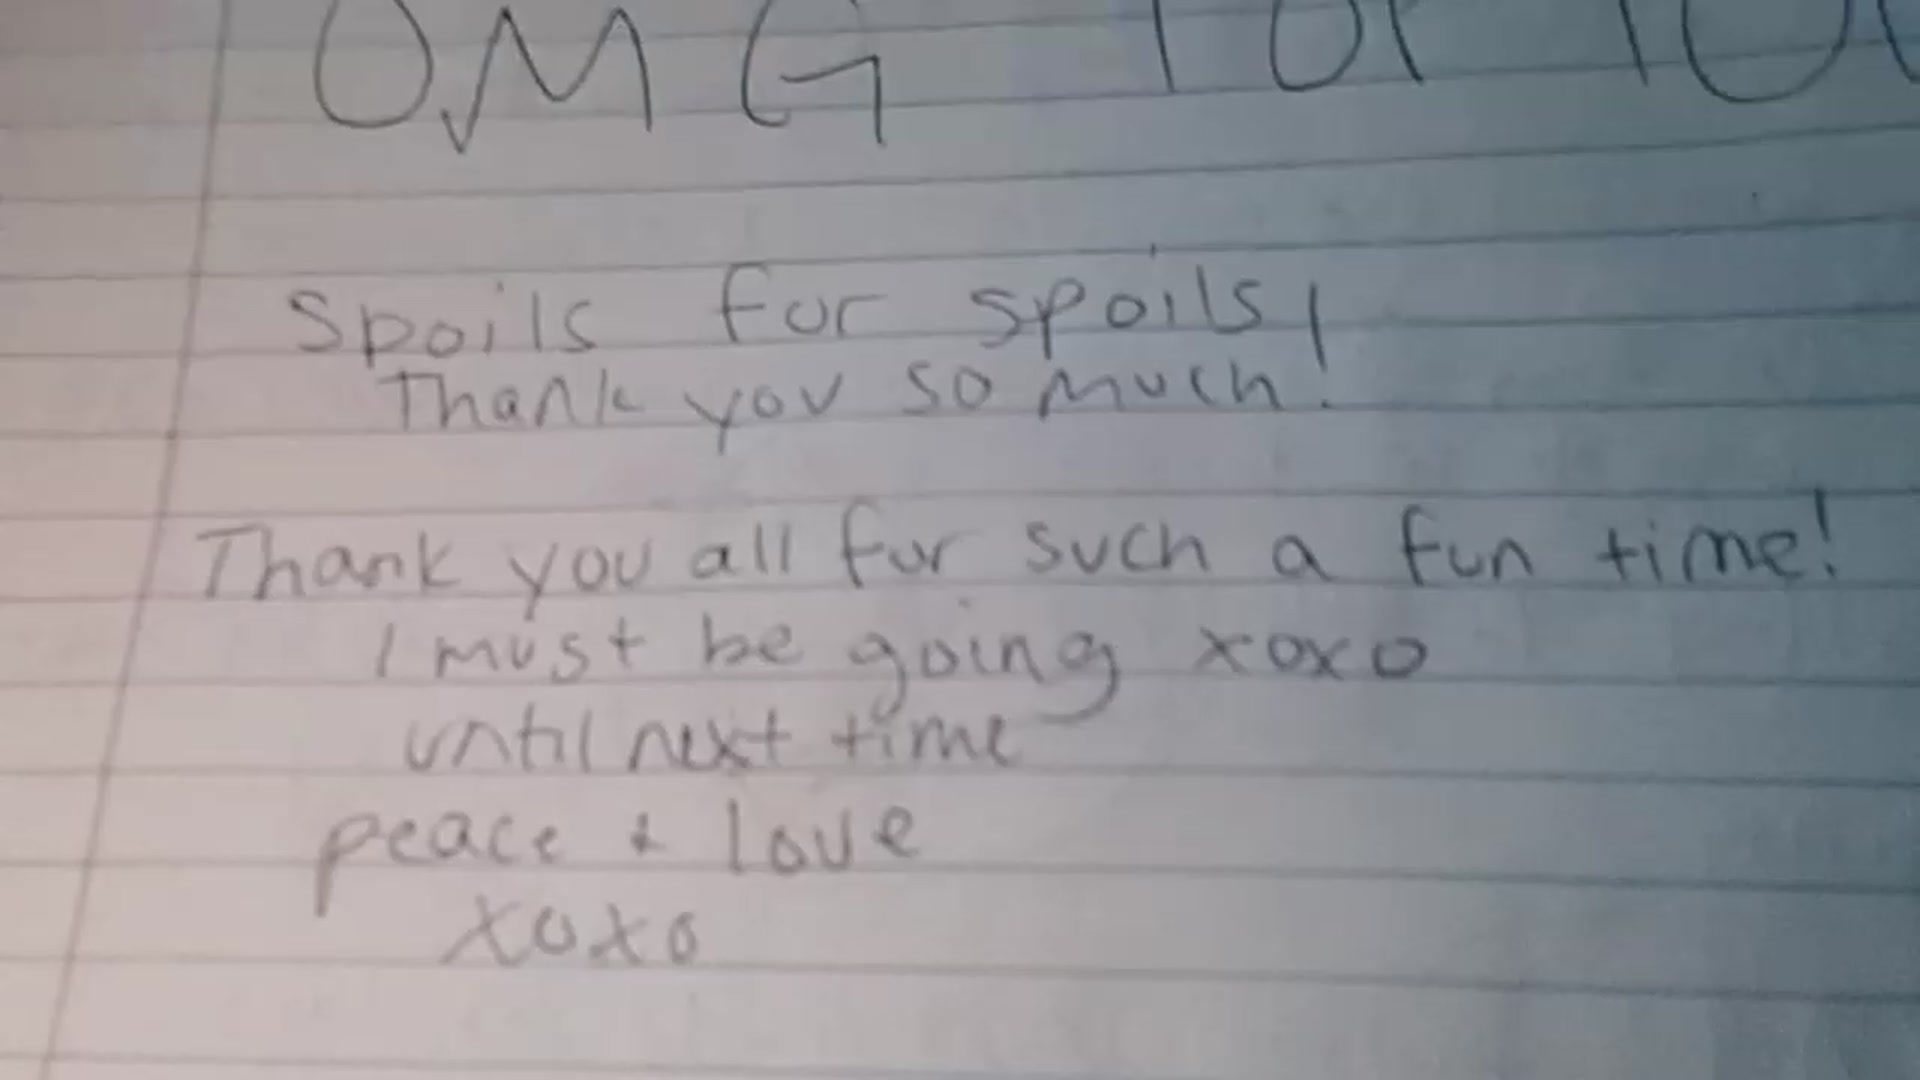 OMG
Spoils for spoils,
Thank you so much!
Thank you all for such a fun time!
I must be going xoxo
until next time
peace + love
xoxo